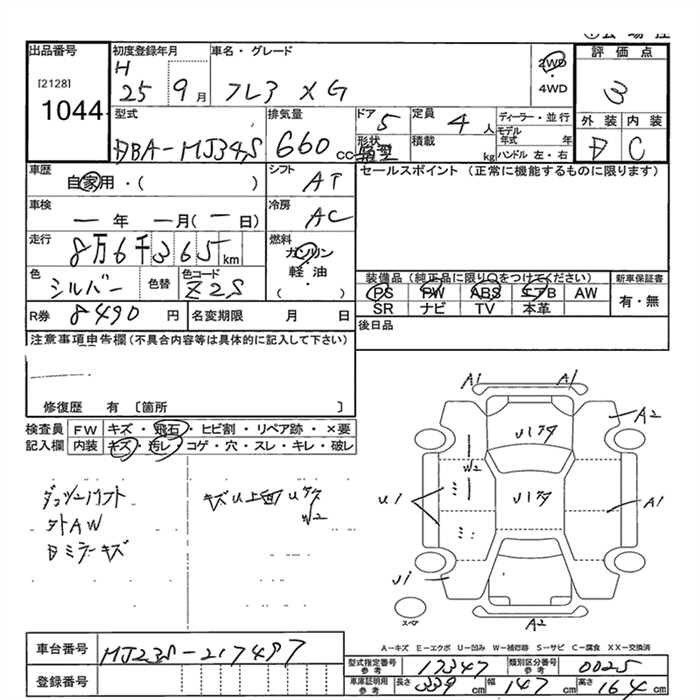 出品番号
[2128]
1044
初度登録年月
H 25 9月
車名・グレード
フレア XG
2WD
・
4WD
評価点
3
外装 内装
D C
型式
DBA-MJ34S
排気量
660 cc
ドア
5
形状
箱型
定員
4人
積載
kg
ディーラー・並行
モデル年式 年
ハンドル 左・右
車歴
自家用・( )
シフト
AT
セールスポイント (正常に機能するものに限ります)
車検
ー年ー月(ー日)
冷房
AC
走行
8万6千365km
燃料
ガソリン
軽油
( )
色
シルバー
色替
色コード
Z2S
装備品 (純正品に限り○をつけてください)
PS PW ABS エアB AW
SR ナビ TV 本革
新車保証書
有・無
R券 8490円
名変期限 月 日
後日品
注意事項申告欄(不具合内容等は具体的に記入して下さい)
修復歴 有 〔箇所 〕
検査員記入欄
FW キズ・飛石・ヒビ割・リペア跡・×要
内装 キズ・汚レ・コゲ・穴・スレ・キレ・破レ
ダッシュハフト
外AW
D ミラーキズ
キズU上面U
W2
A1 A1
A2
U1
W2
U1
A1
U1
スペア
A2
A-キズ E-エクボ U-凹み W-補修跡 S-サビ C-腐食 XX-交換済
車台番号
MJ23S-217497
登録番号
型式指定番号
参考
17347
類別区分番号
参考
0025
車庫証明用
参考
長さ 339cm 幅 147cm 高さ 164cm